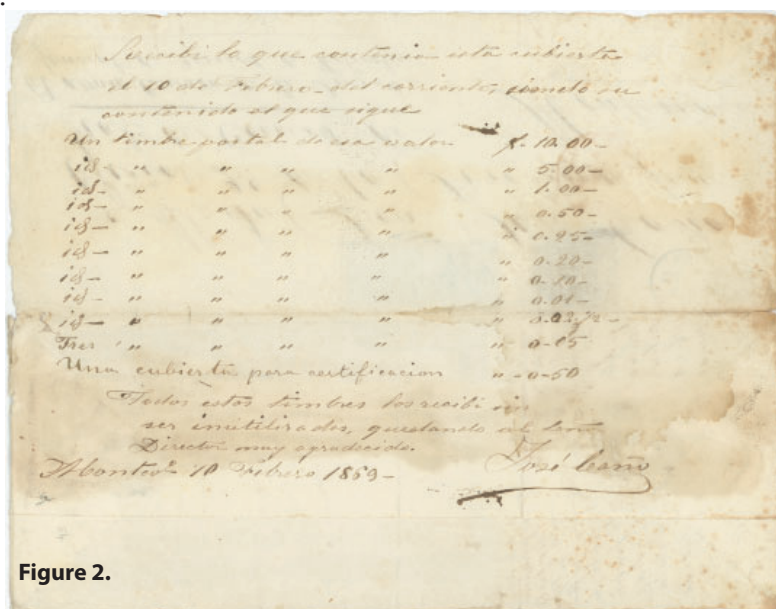 Recibí lo que contenia esta cubierta
el 10 de Febrero del corriente, siendo su
contenido el que sigue
Un timbre postal de su valor $ 10.00-
id- " " " " " 5.00-
id- " " " " " 1.00-
id- " " " " " 0.50-
id- " " " " " 0.25-
id- " " " " " 0.20-
id- " " " " " 0.10-
id- " " " " " 0.01-
id- " " " " " 0.02½-
Tres " " " " " 0-05
Una cubierta para certificacion "-0-50
Todos estos timbres los recibi sin
ser inutilizados, quedando al
Director muy agradecido.
10 Febrero 1869-
José
Figure 2.